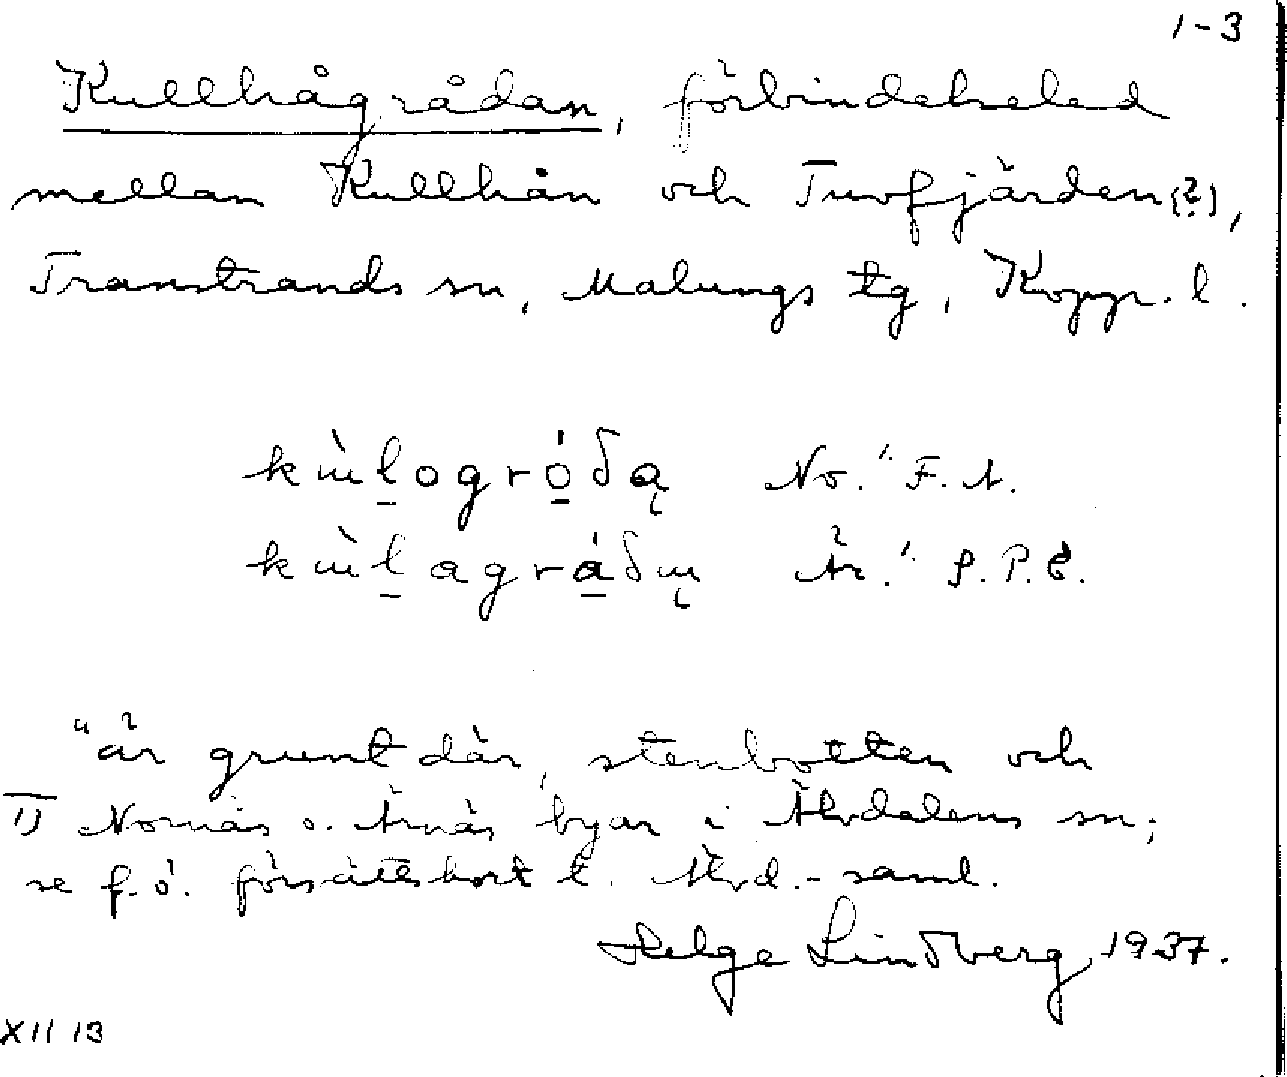 1-3
Kullhågrådan, förbindelseled
mellan Kullhån och Tuvfjärden (?),
Transtrands sn, Malungs tg, Kopp. l.
kùl̠ogró̠ðą No.¹⁾ F. A.
kùl̠agrá̠ðn̨ Är.¹⁾ S. P. E.
"är grunt där, stenbotten och
1) Nornäs o. Ärnäs byar i Älvdalens sn;
se f.ö. försättskort t. Älvd.-saml.
Helge Lindberg, 1937.
XII 13